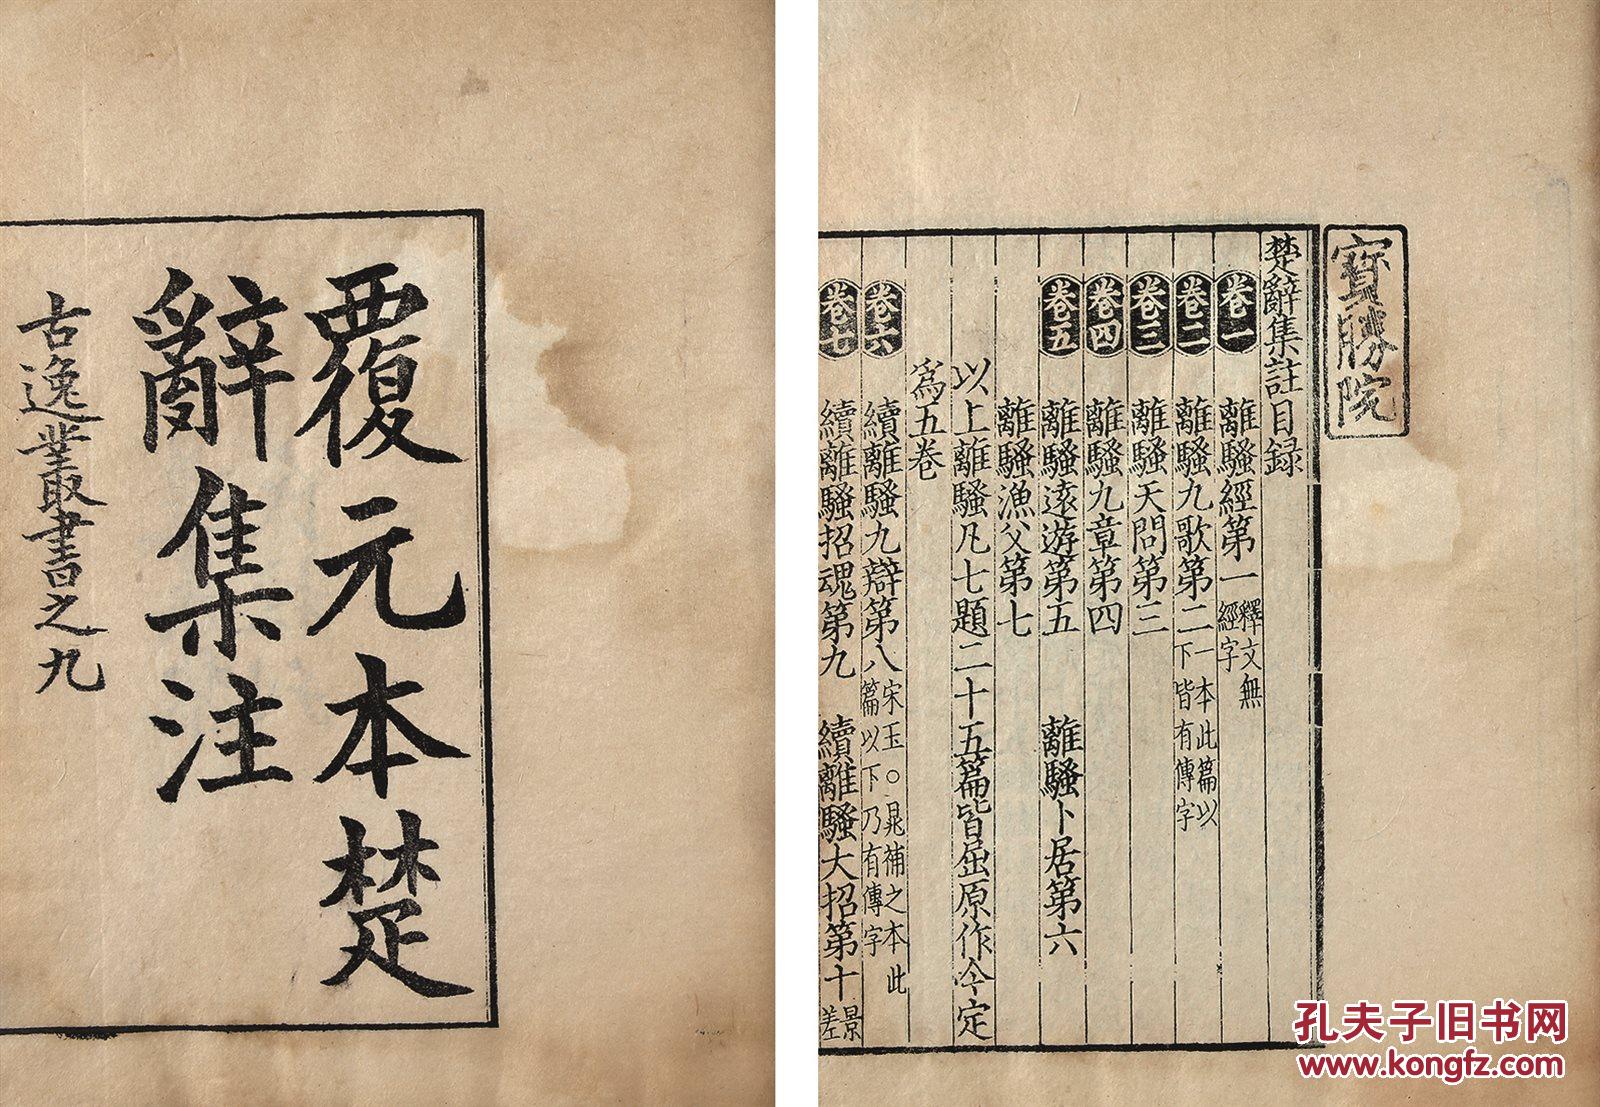 覆元本楚
辭集注
古逸叢書之九
寶勝院
楚辭集註目録
卷一 離騷經第一 釋文無經字
卷二 離騷九歌第二 一本此篇以下皆有傳字
卷三 離騷天問第三
卷四 離騷九章第四
卷五 離騷遠游第五 離騷卜居第六
離騷漁父第七
以上離騷凡七題二十五篇皆屈原作今定
為五卷
卷六 續離騷九辯第八 宋玉○晁補之本此篇以下乃有傳字
卷七 續離騷招魂第九 續離騷大招第十 景差
孔夫子旧书网
www.kongfz.com